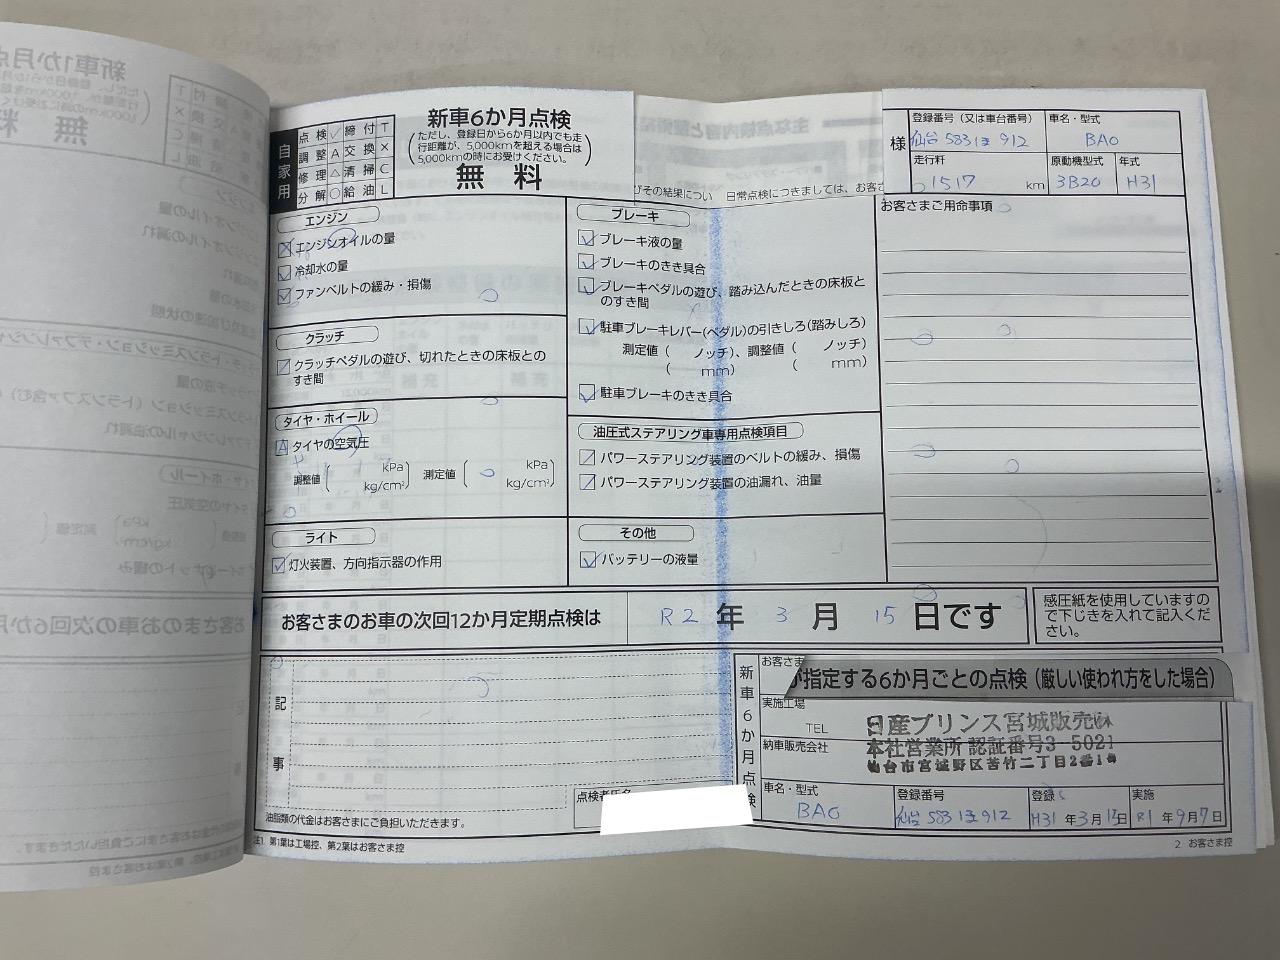 自家用
点検 ✓ 締付 T
調整 A 交換 ×
修理 △ 清掃 C
分解 ○ 給油 L
新車6か月点検
(ただし、登録日から6か月以内でも走
行距離が、5,000kmを超える場合は
5,000kmの時にお受けください。)
無料
主な点検内容と
びその結果につい 日常点検につきましては、お客さ
様
登録番号(又は車台番号)
仙台 583 ほ 912
車名・型式
BA0
走行粁
1517 km
原動機型式
3B20
年式
H31
お客さまご用命事項
エンジン
エンジンオイルの量
冷却水の量
ファンベルトの緩み・損傷
クラッチ
クラッチペダルの遊び、切れたときの床板との
すき間
タイヤ・ホイール
A タイヤの空気圧
調整値 ( kPa kg/cm² ) 測定値 ( kPa kg/cm² )
ライト
灯火装置、方向指示器の作用
ブレーキ
ブレーキ液の量
ブレーキのきき具合
ブレーキペダルの遊び、踏み込んだときの床板と
のすき間
駐車ブレーキレバー(ペダル)の引きしろ(踏みしろ)
測定値 ( ノッチ)、調整値 ( ノッチ)
( mm) ( mm)
駐車ブレーキのきき具合
油圧式ステアリング車専用点検項目
パワーステアリング装置のベルトの緩み、損傷
パワーステアリング装置の油漏れ、油量
その他
バッテリーの液量
お客さまのお車の次回12か月定期点検は R2 年 3 月 15 日です
感圧紙を使用していますの
で下じきを入れて記入くだ
さい。
記事
油脂類の代金はお客さまにご負担いただきます。
点検者氏名
新車6か月点検
お客さま
が指定する6か月ごとの点検(厳しい使われ方をした場合)
実施工場
TEL
納車販売会社
日産プリンス宮城販売㈱
本社営業所 認証番号3-5021
仙台市宮城野区苦竹二丁目2番1号
車名・型式
BA0
登録番号
仙台 583 ほ 912
登録
H31 年 3 月 15 日
実施
R1 年 9 月 7 日
注1. 第1葉は工場控、第2葉はお客さま控
2 お客さま控